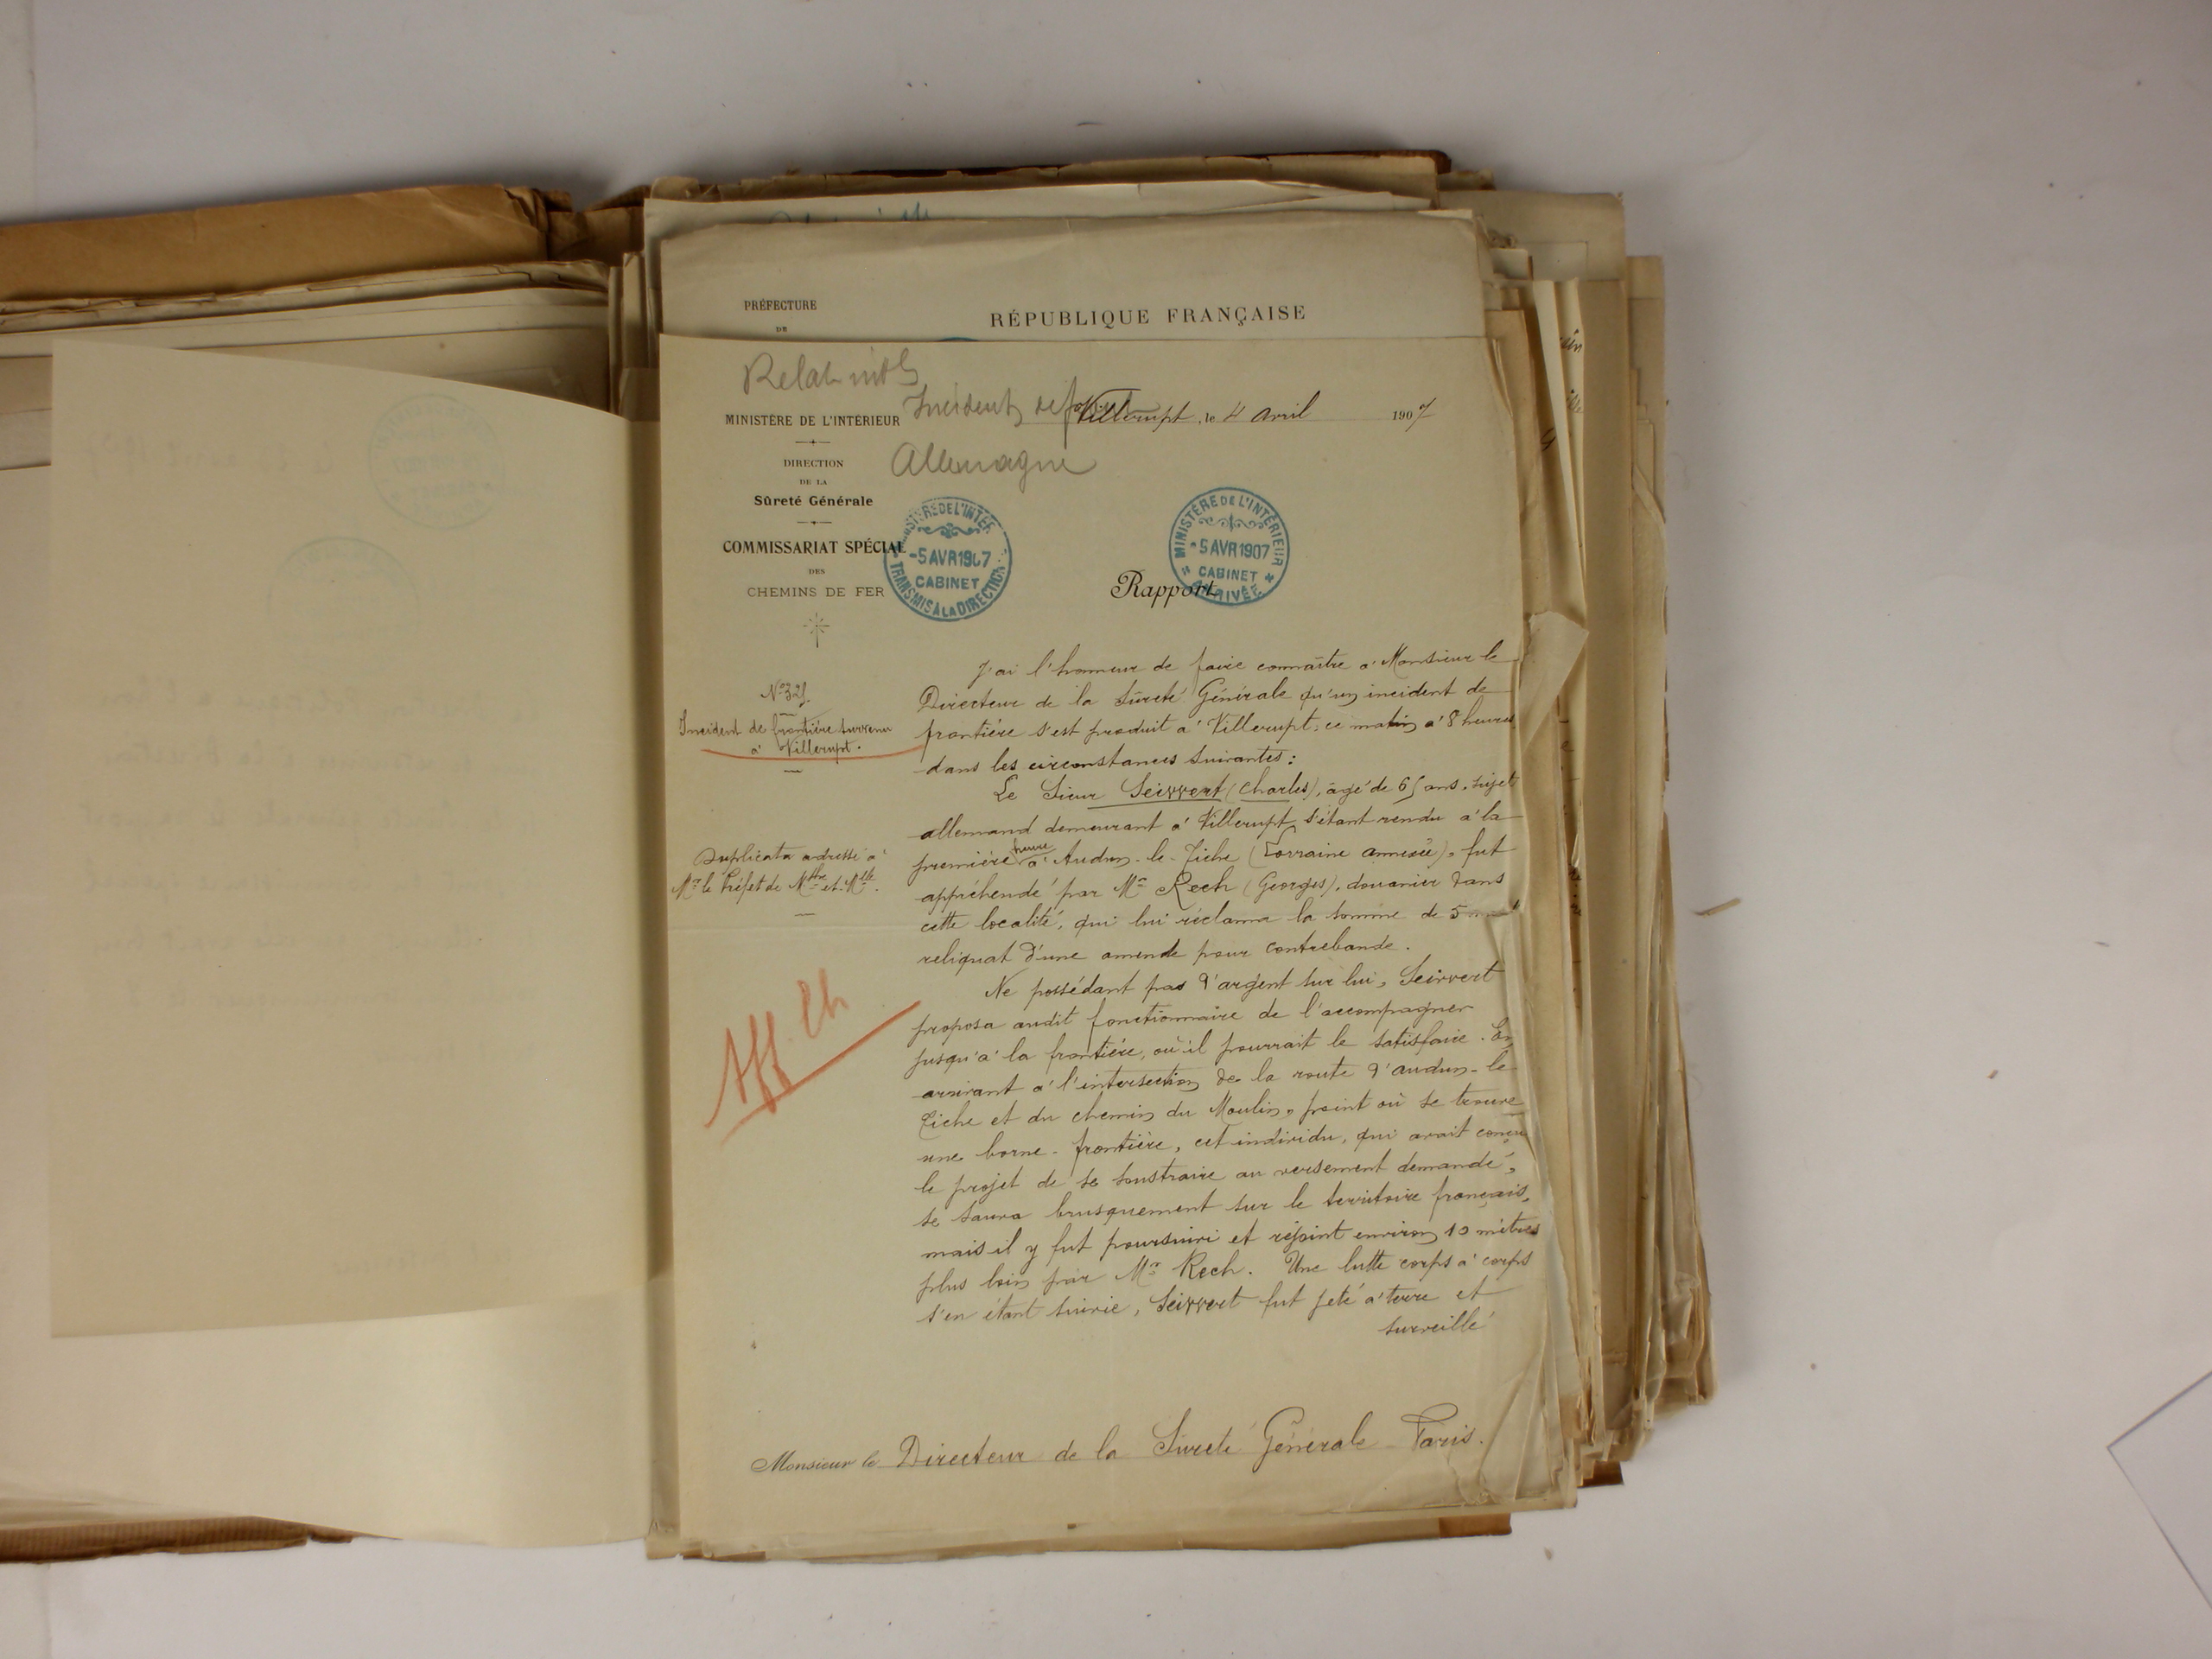 PRÉFECTURE
DE
RÉPUBLIQUE FRANÇAISE
Incident de
Allemagne
MINISTÈRE DE L'INTÉRIEUR
DIRECTION
DE LA
Sûreté Générale
COMMISSARIAT SPÉCIAL
DES
CHEMINS DE FER
Villerupt, le 4 avril 1907
MINISTÈRE DE L'INTÉR
-5 AVR 1907
CABINET
TRANSMIS A LA DIRECTION
MINISTÈRE DE L'INTÉRIEUR
-5 AVR 1907
CABINET
ARRIVÉE
Rapport
Incident de frontière survenu
à Villerupt.
Duplicata adressé à
Mr le Préfet de Mthe et Mlle.
Aff. Ch
J'ai l'honneur de faire connaître à Monsieur le
Directeur de la Sûreté Générale qu'un incident de
frontière s'est produit à Villerupt, ce matin à 8 heures
dans les circonstances suivantes :
Le Sieur Seivvert (Charles), âgé de 65 ans, sujet
allemand demeurant à Villerupt, s'étant rendu à la
première heure à Audun-le-Tiche (Lorraine annexée), fut
appréhendé par Mr Rech (Georges), douanier dans
cette localité, qui lui réclama la somme de 5
reliquat d'une amende pour contrebande.
Ne possédant pas d'argent sur lui, Seivvert
proposa audit fonctionnaire de l'accompagner
jusqu'à la frontière, où il pourrait le satisfaire. En
arrivant à l'intersection de la route d'Audun-le-
Tiche et du chemin du Moulin, point où se trouve
une borne-frontière, cet individu, qui avait conçu
le projet de se soustraire au versement demandé,
se sauva brusquement sur le territoire français,
mais il y fut poursuivi et rejoint environ 10 mètres
plus loin par Mr Rech. Une lutte corps à corps
s'en étant suivie, Seivvert fut jeté à terre et
surveillé
Monsieur le Directeur de la Sûreté Générale Paris.